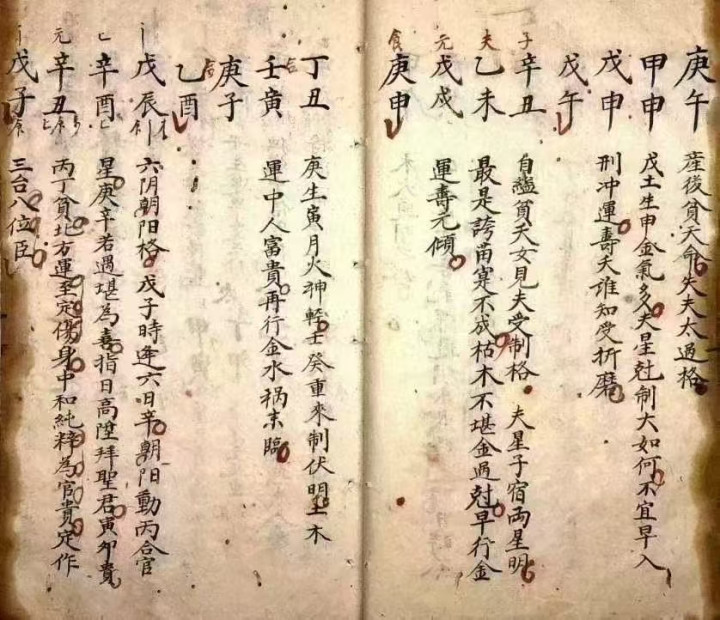 庚午
甲申
戊申
戊午
產後貧夭命 失夫太過格
戊土生申金氣多夫星尅制大如何不宜早入
刑冲運壽夭誰知受折磨
子
辛丑
夫
乙未
元
戊戌
食
庚申
自縊貧夭女見夫受制格 夫星子宿両星明
最是誇苗寔不成枯木不堪金過尅早行金
運壽元傾
丁丑
壬寅
庚子
乙酉
庚生寅月火神輕壬癸重來制伏明土木
運中人富貴再行金水禍來臨
戊辰
辛酉
元
辛丑
戊子
六阴朝阳格 戊子時逢六日辛朝阳動丙合官
星庚辛若遇堪為喜指日高陞拜聖君寅夘貴
丙丁貧北方運至定傷身中和純粹為官貴定作
三台八位臣